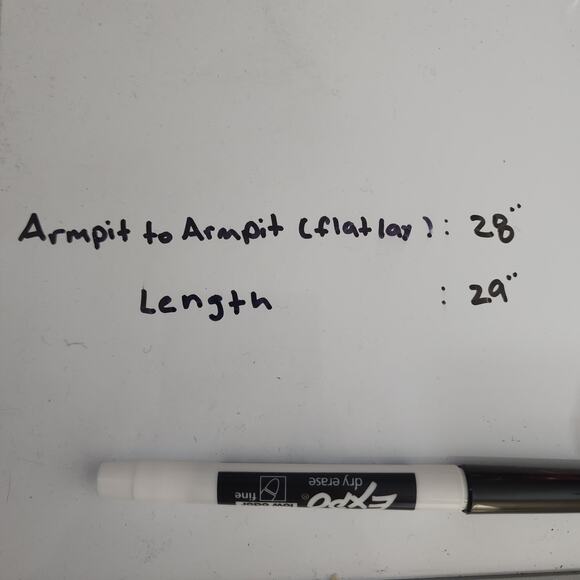 Armpit to Armpit (flat lay) : 28"
Length : 29"
EXPO®
dry erase
low odor
fine